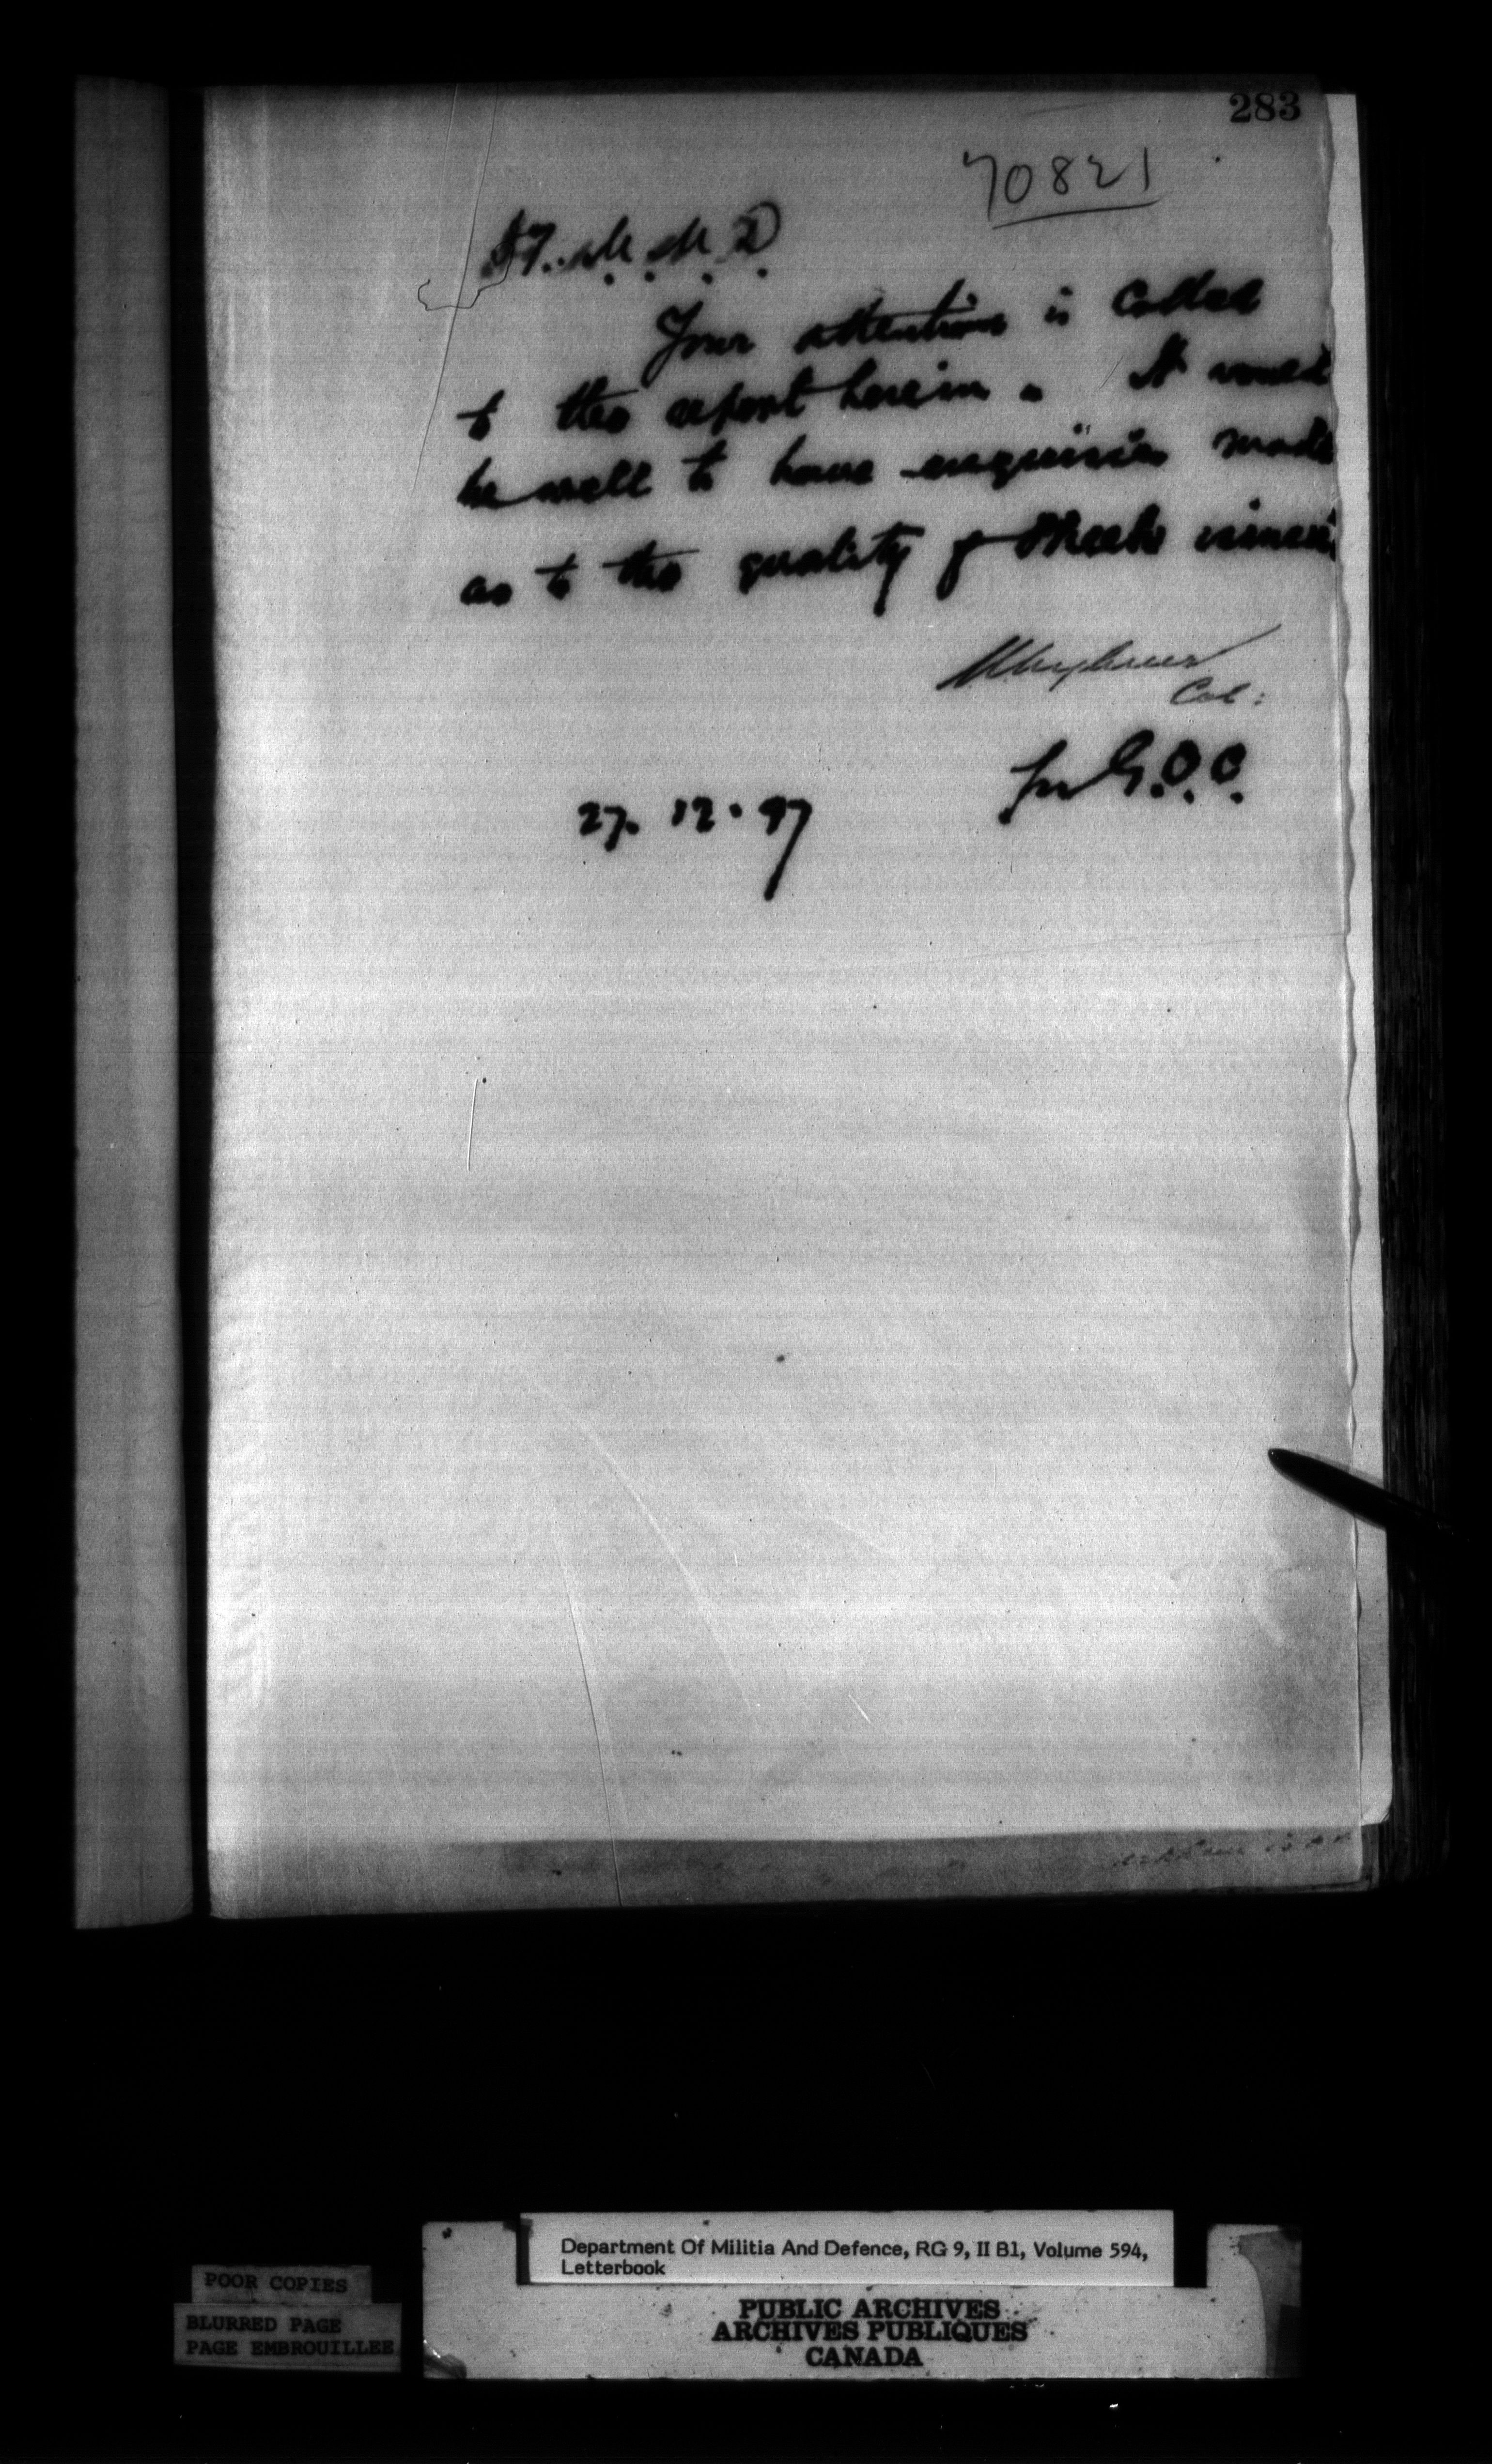 283
70821
D
Your attention is called
to the report herein. It would
be well to have enquiries made
as to the quality of
Col:
for G.O.C.
27. 12. 97
Department Of Militia And Defence, RG 9, II B1, Volume 594,
Letterbook
POOR COPIES
BLURRED PAGE
PAGE EMBROUILLEE
PUBLIC ARCHIVES
ARCHIVES PUBLIQUES
CANADA